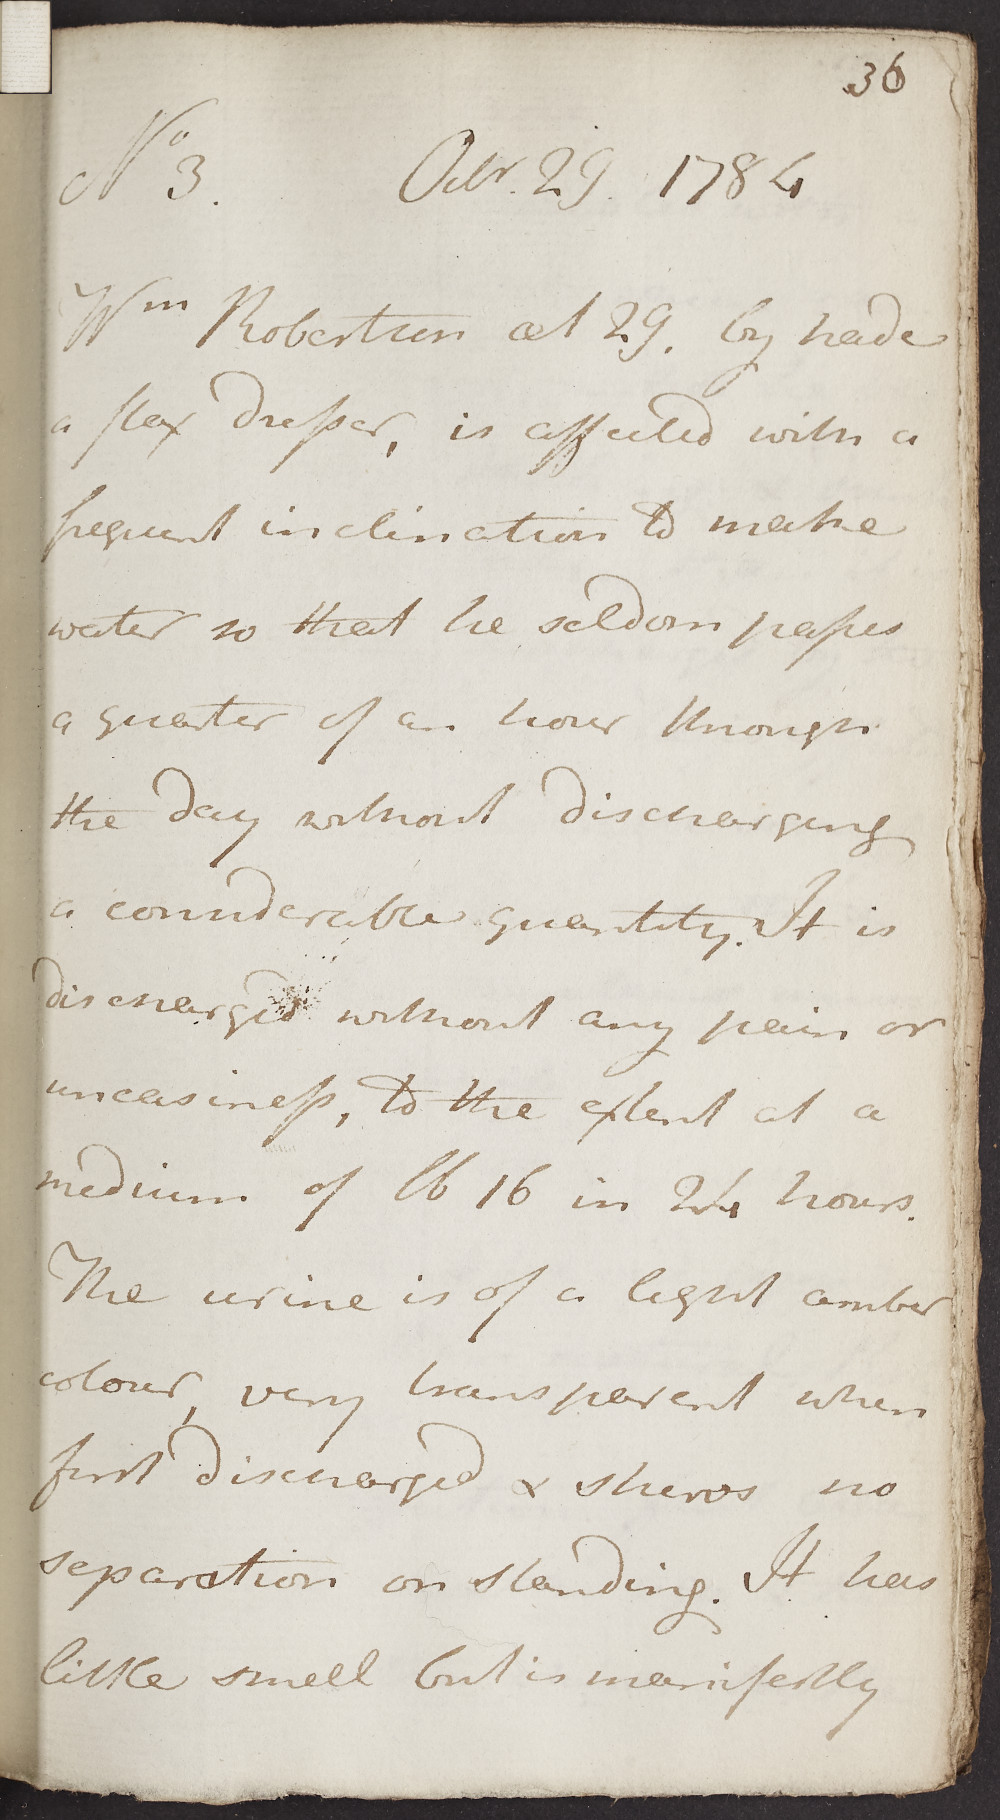 36
No 3. Octr. 29. 1784
Wm Robertson æt 29. by trade
a flax dresser, is affected with a
frequent inclination to make
water so that he seldom passes
a quarter of an hour through
the day without discharging
a considerable quantity. It is
discharged without any pain or
uneasiness, to the extent at a
medium of lb 16 in 24 hours.
The urine is of a light amber
colour, very transparent when
first discharged & shews no
separation on standing. It has
little smell but is manifestly